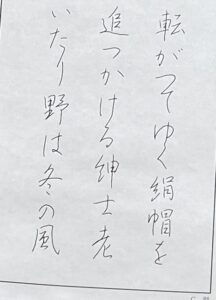 転がつてゆく絹帽を
追つかける紳士老
いたり野は冬の風